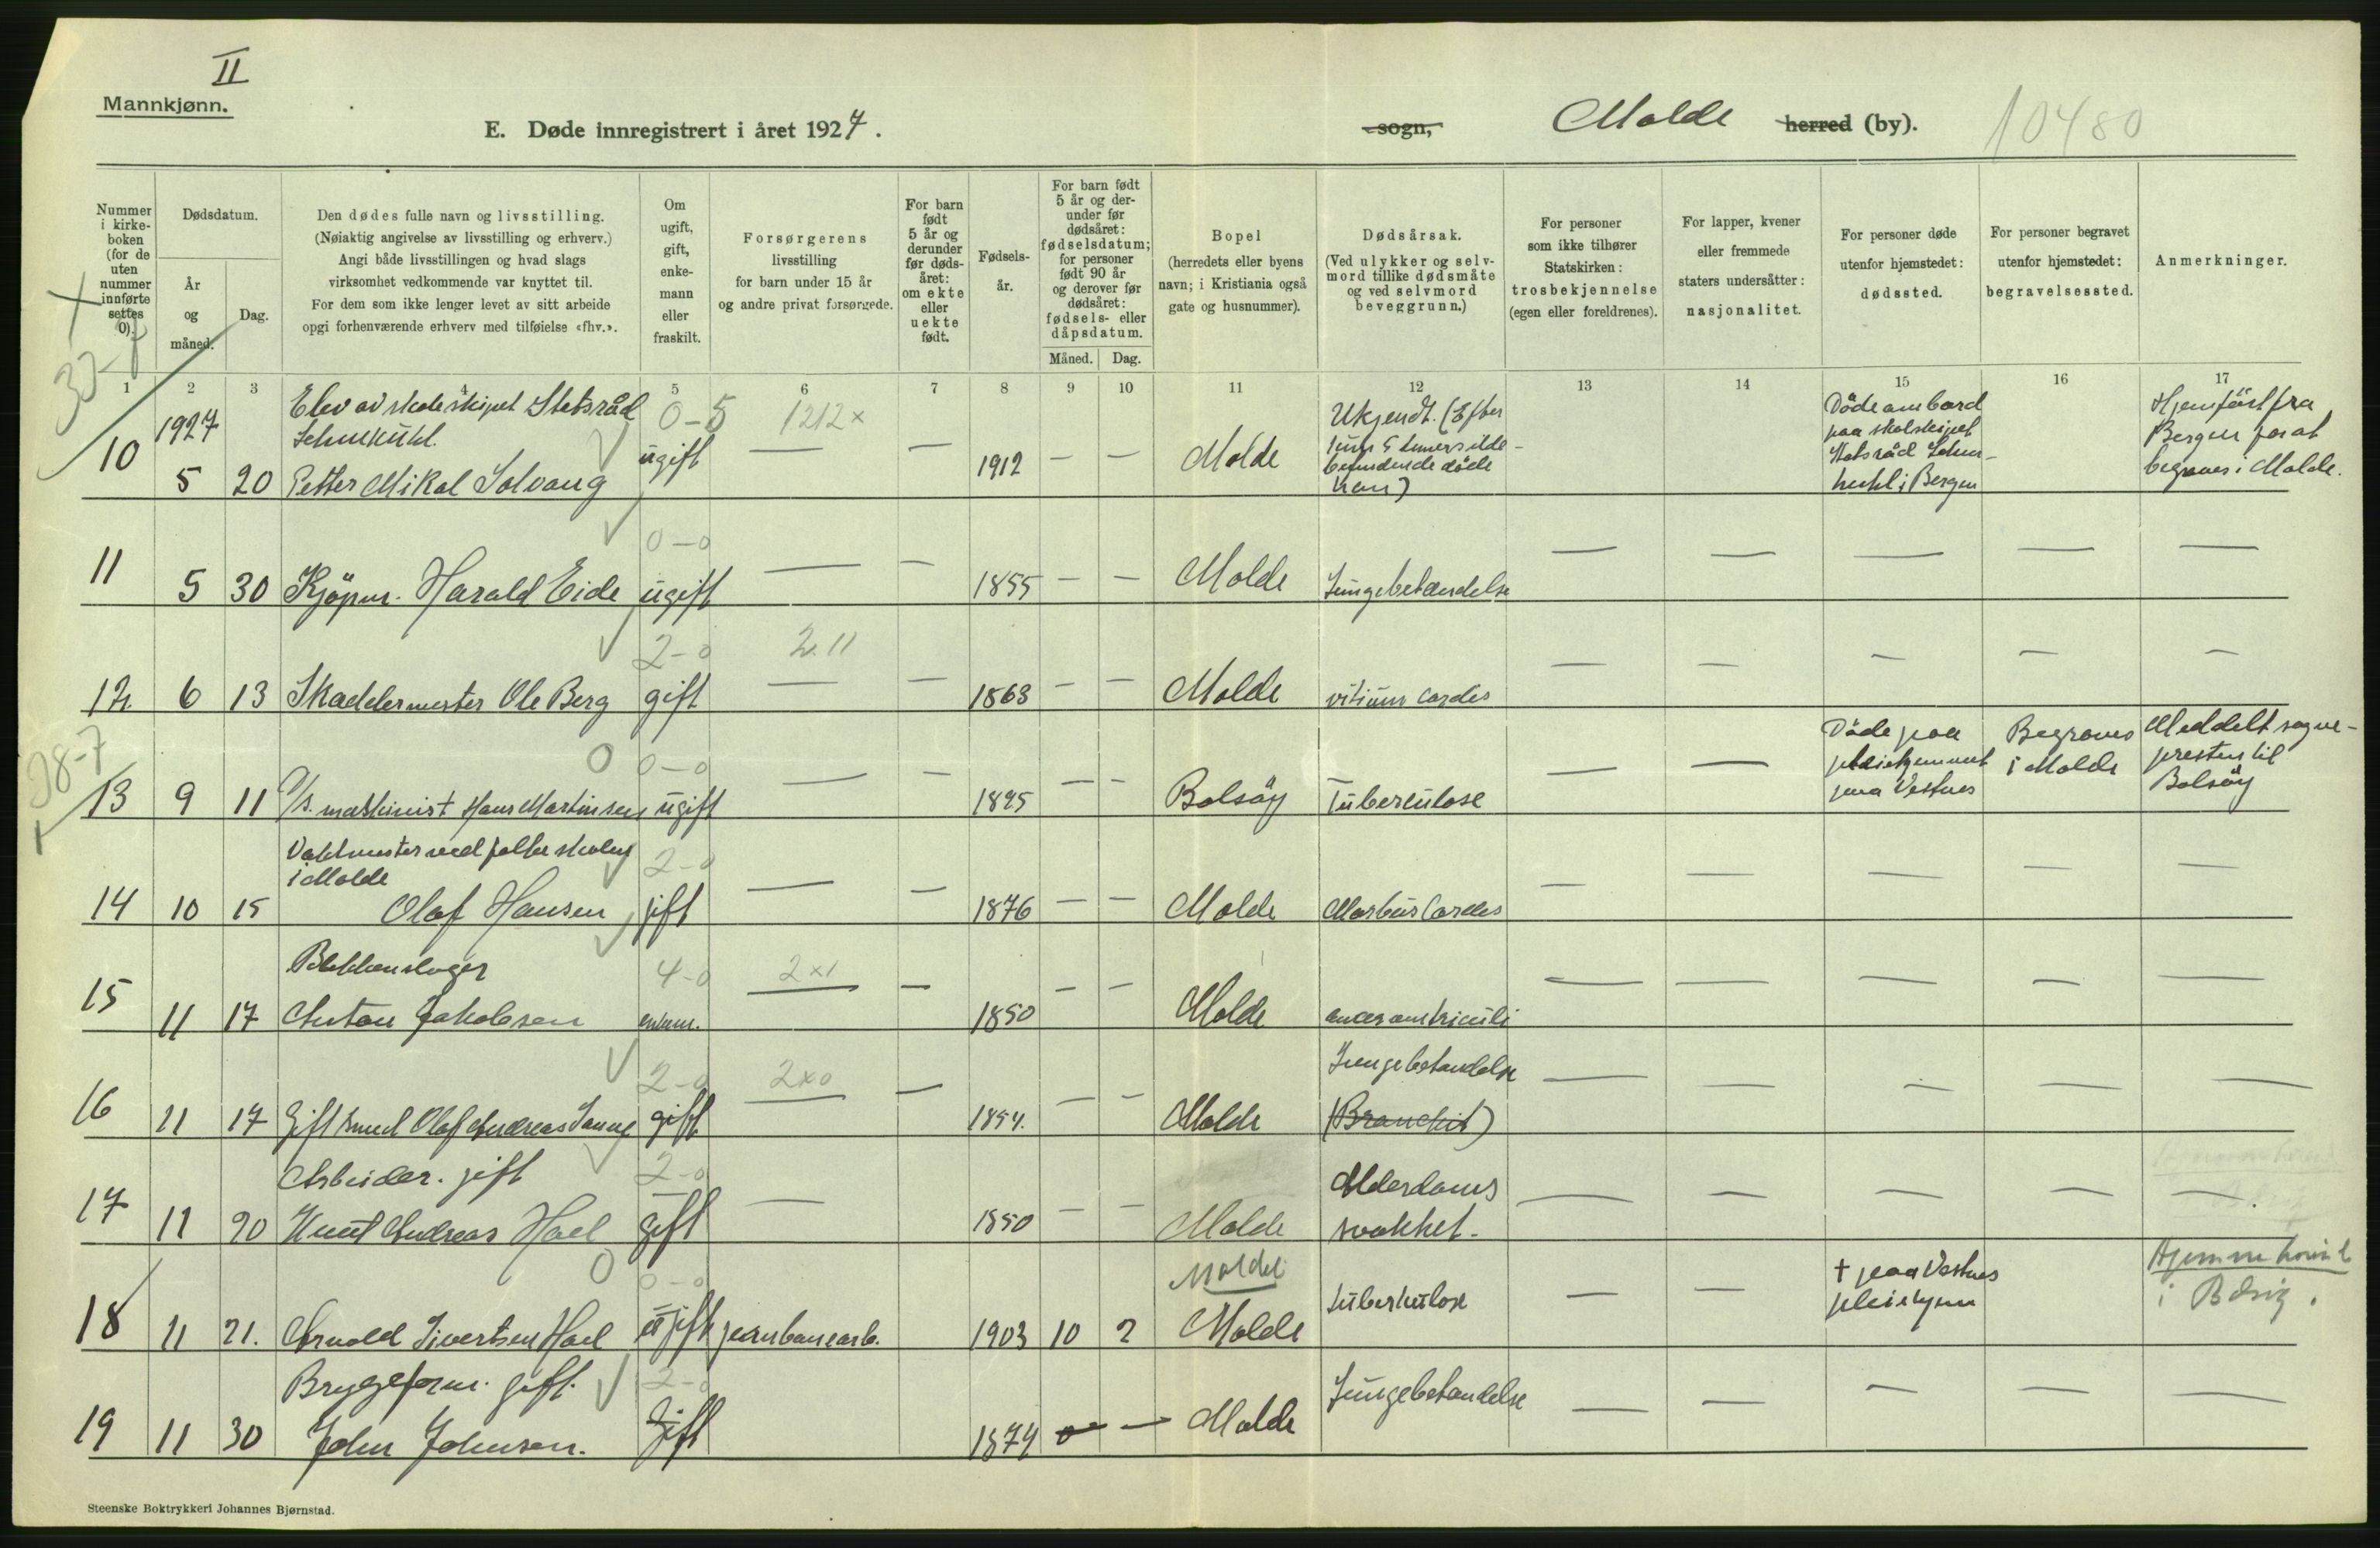 II
Mannkjønn.
E. Døde innregistrert i året 1927.
sogn, Molde herred (by).
10480
Nummer i kirke-boken (for de uten nummer innførte settes 0).
Dødsdatum.
År og måned.
Dag.
Den dødes fulle navn og livsstilling.
(Nøiaktig angivelse av livsstilling og erhverv.)
Angi både livsstillingen og hvad slags
virksomhet vedkommende var knyttet til.
For dem som ikke lenger levet av sitt arbeide
opgi forhenværende erhverv med tilføielse «fhv.».
Om ugift, gift, enke-mann eller fraskilt.
Forsørgerens
livsstilling
for barn under 15 år
og andre privat forsørgede.
For barn født 5 år og derunder før døds-året: om ekte eller uekte født.
Fødsels-år.
For barn født 5 år og der-under før dødsåret: fødselsdatum; for personer født 90 år og derover før dødsåret: fødsels- eller dåpsdatum.
Måned. Dag.
Bopel
(herredets eller byens
navn; i Kristiania også
gate og husnummer).
Dødsårsak.
(Ved ulykker og selv-
mord tillike dødsmåte
og ved selvmord
beveggrunn.)
For personer
som ikke tilhører
Statskirken:
trosbekjennelse
(egen eller foreldrenes).
For lapper, kvener
eller fremmede
staters undersåtter:
nasjonalitet.
For personer døde
utenfor hjemstedet:
dødssted.
For personer begravet
utenfor hjemstedet:
begravelsessted.
Anmerkninger.
1 2 3 4 5 6 7 8 9 10 11 12 13 14 15 16 17
10 1927 5 20
Elev av skoleskipet Statsråd
Petter Mikal Solvang
0-5
ugift
1212x
— — 1912 — — Molde
Ukjendt. (Efter
befindende døde
han)
Døde ombord
paa skoleskipet
Statsråd Lehm-
kuhl i Bergen
Hjemført fra
Bergen for at
begraves i Molde.
11 5 30 Kjøpm. Harald Eide
0-0
ugift — — 1855 — — Molde Lungebetændelse — — — — —
12. 6 13 Skreddermester Ole Berg
2-0
gift
2.11
— — 1863 — — Molde vitium cordis — — — — —
28-7
13 9 11 maskinist Hans Martinsen
0 0-0
ugift — — 1895 — — Bolsøy Tuberkulose — —
Døde paa
pleiehjemmet
paa Vestnes
Begraves
i Molde
Meddelt sogne-
presten til
Bolsøy
14 10 15
Vaktmester ved folkeskolen
i Molde
Olaf Hansen
2-0
gift — — 1876 — — Molde Morbus Cordis — — — — —
15 11 17
Blikkenslager
Anton Jakobsen
4-0
enkem.
2x1
— 1850 — — Molde — — — — —
16 11 17 Gift smed Olaf Andreas
2-0
gift
2x0
— 1854. — — Molde
Lungebetændelse
(Bronchit)
— — — — —
17 11 20
Arbeider. gift
Knut Andreas Hoel
2-0
gift — 1850 — — Molde
Alderdoms
svakhet.
— — — — —
18 11 21. Arnold Sivertsen Hoel
0 0-0
ugift jernbanearb. 1903 10 2
Molde
Molde
tuberkulose — —
+ paa Vestnes
pleiehjem
Hjemmehørende
i Bolsøy.
19 11 30
Bryggeform. gift.
John Johnsen.
2-0
Gift 1874 — — Molde Lungebetændelse — — — — —
Steenske Boktrykkeri Johannes Bjørnstad.